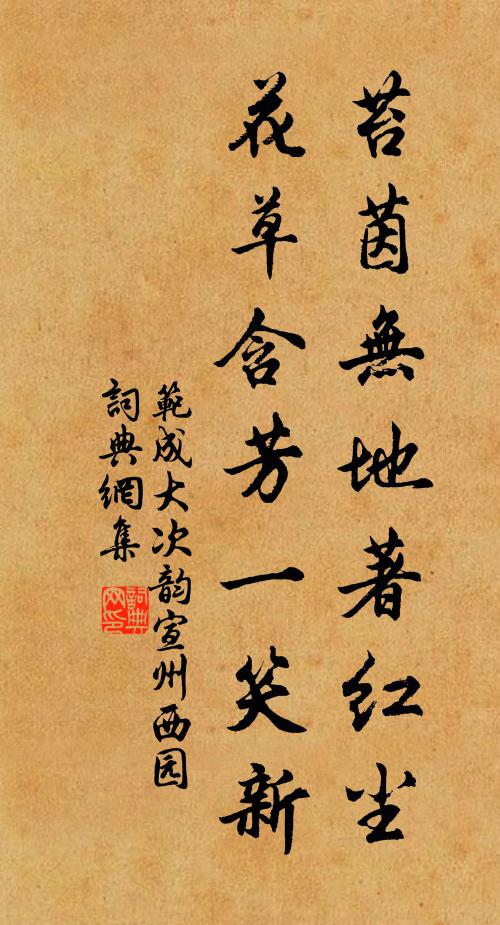 苔茵無地著红尘
花草含芳一笑新
範成大次韵宣州西园
詞典網集
詞典网印